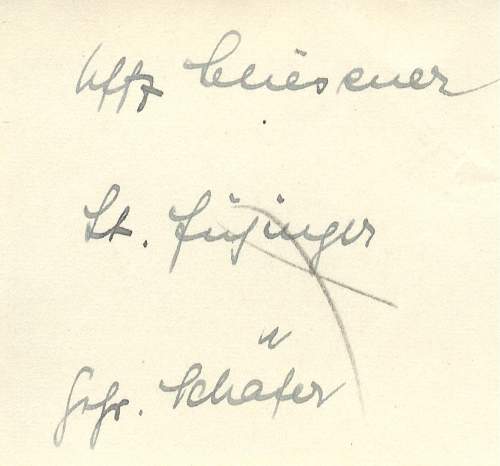 Uffz Cliesener
Lt. Füsinger
Gefr. Schäfer